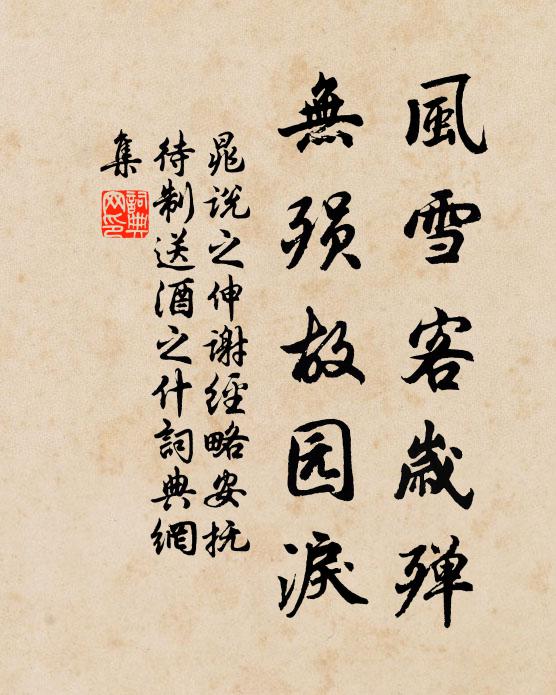 風雪客歲殫
無殞故园淚
晁說之伸謝經略安抚
待制送酒之什詞典網
集
詞典
网印